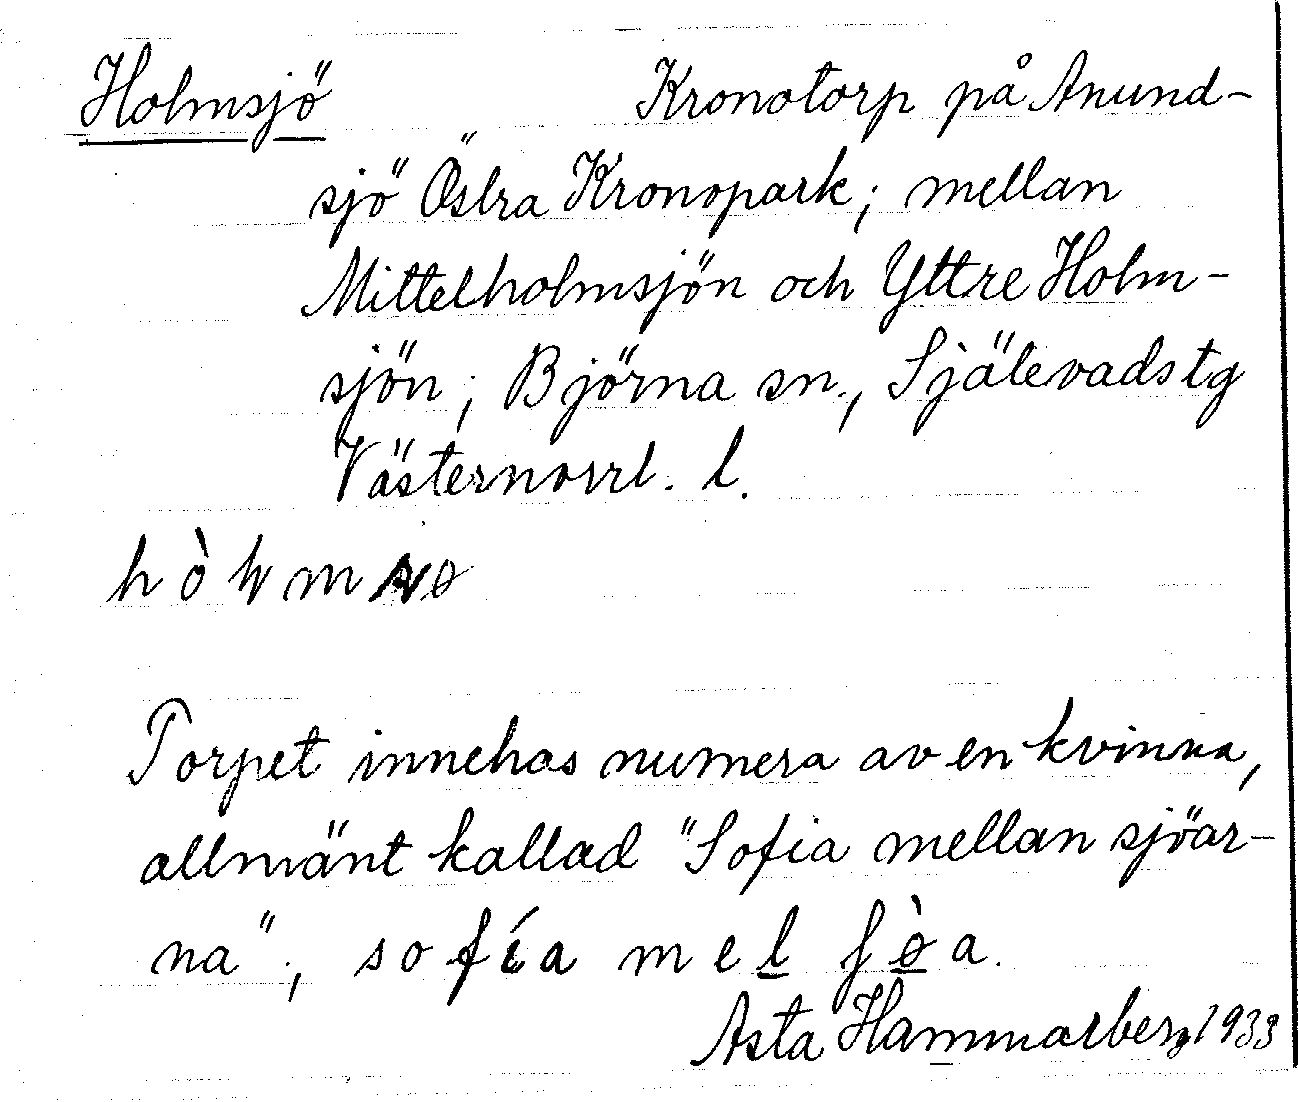 Holmsjö Kronotorp på Anund-
sjö Östra Kronopark; mellan
Mittelholmsjön och Yttre Holm-
sjön; Björna sn., Själevads tg
Västernorrl. l.
Torpet innehas numera av en kvinna,
allmänt kallad "Sofia mellan sjöar-
na"; sofía mel ʃø̀a.
Asta Hammarberg 1933